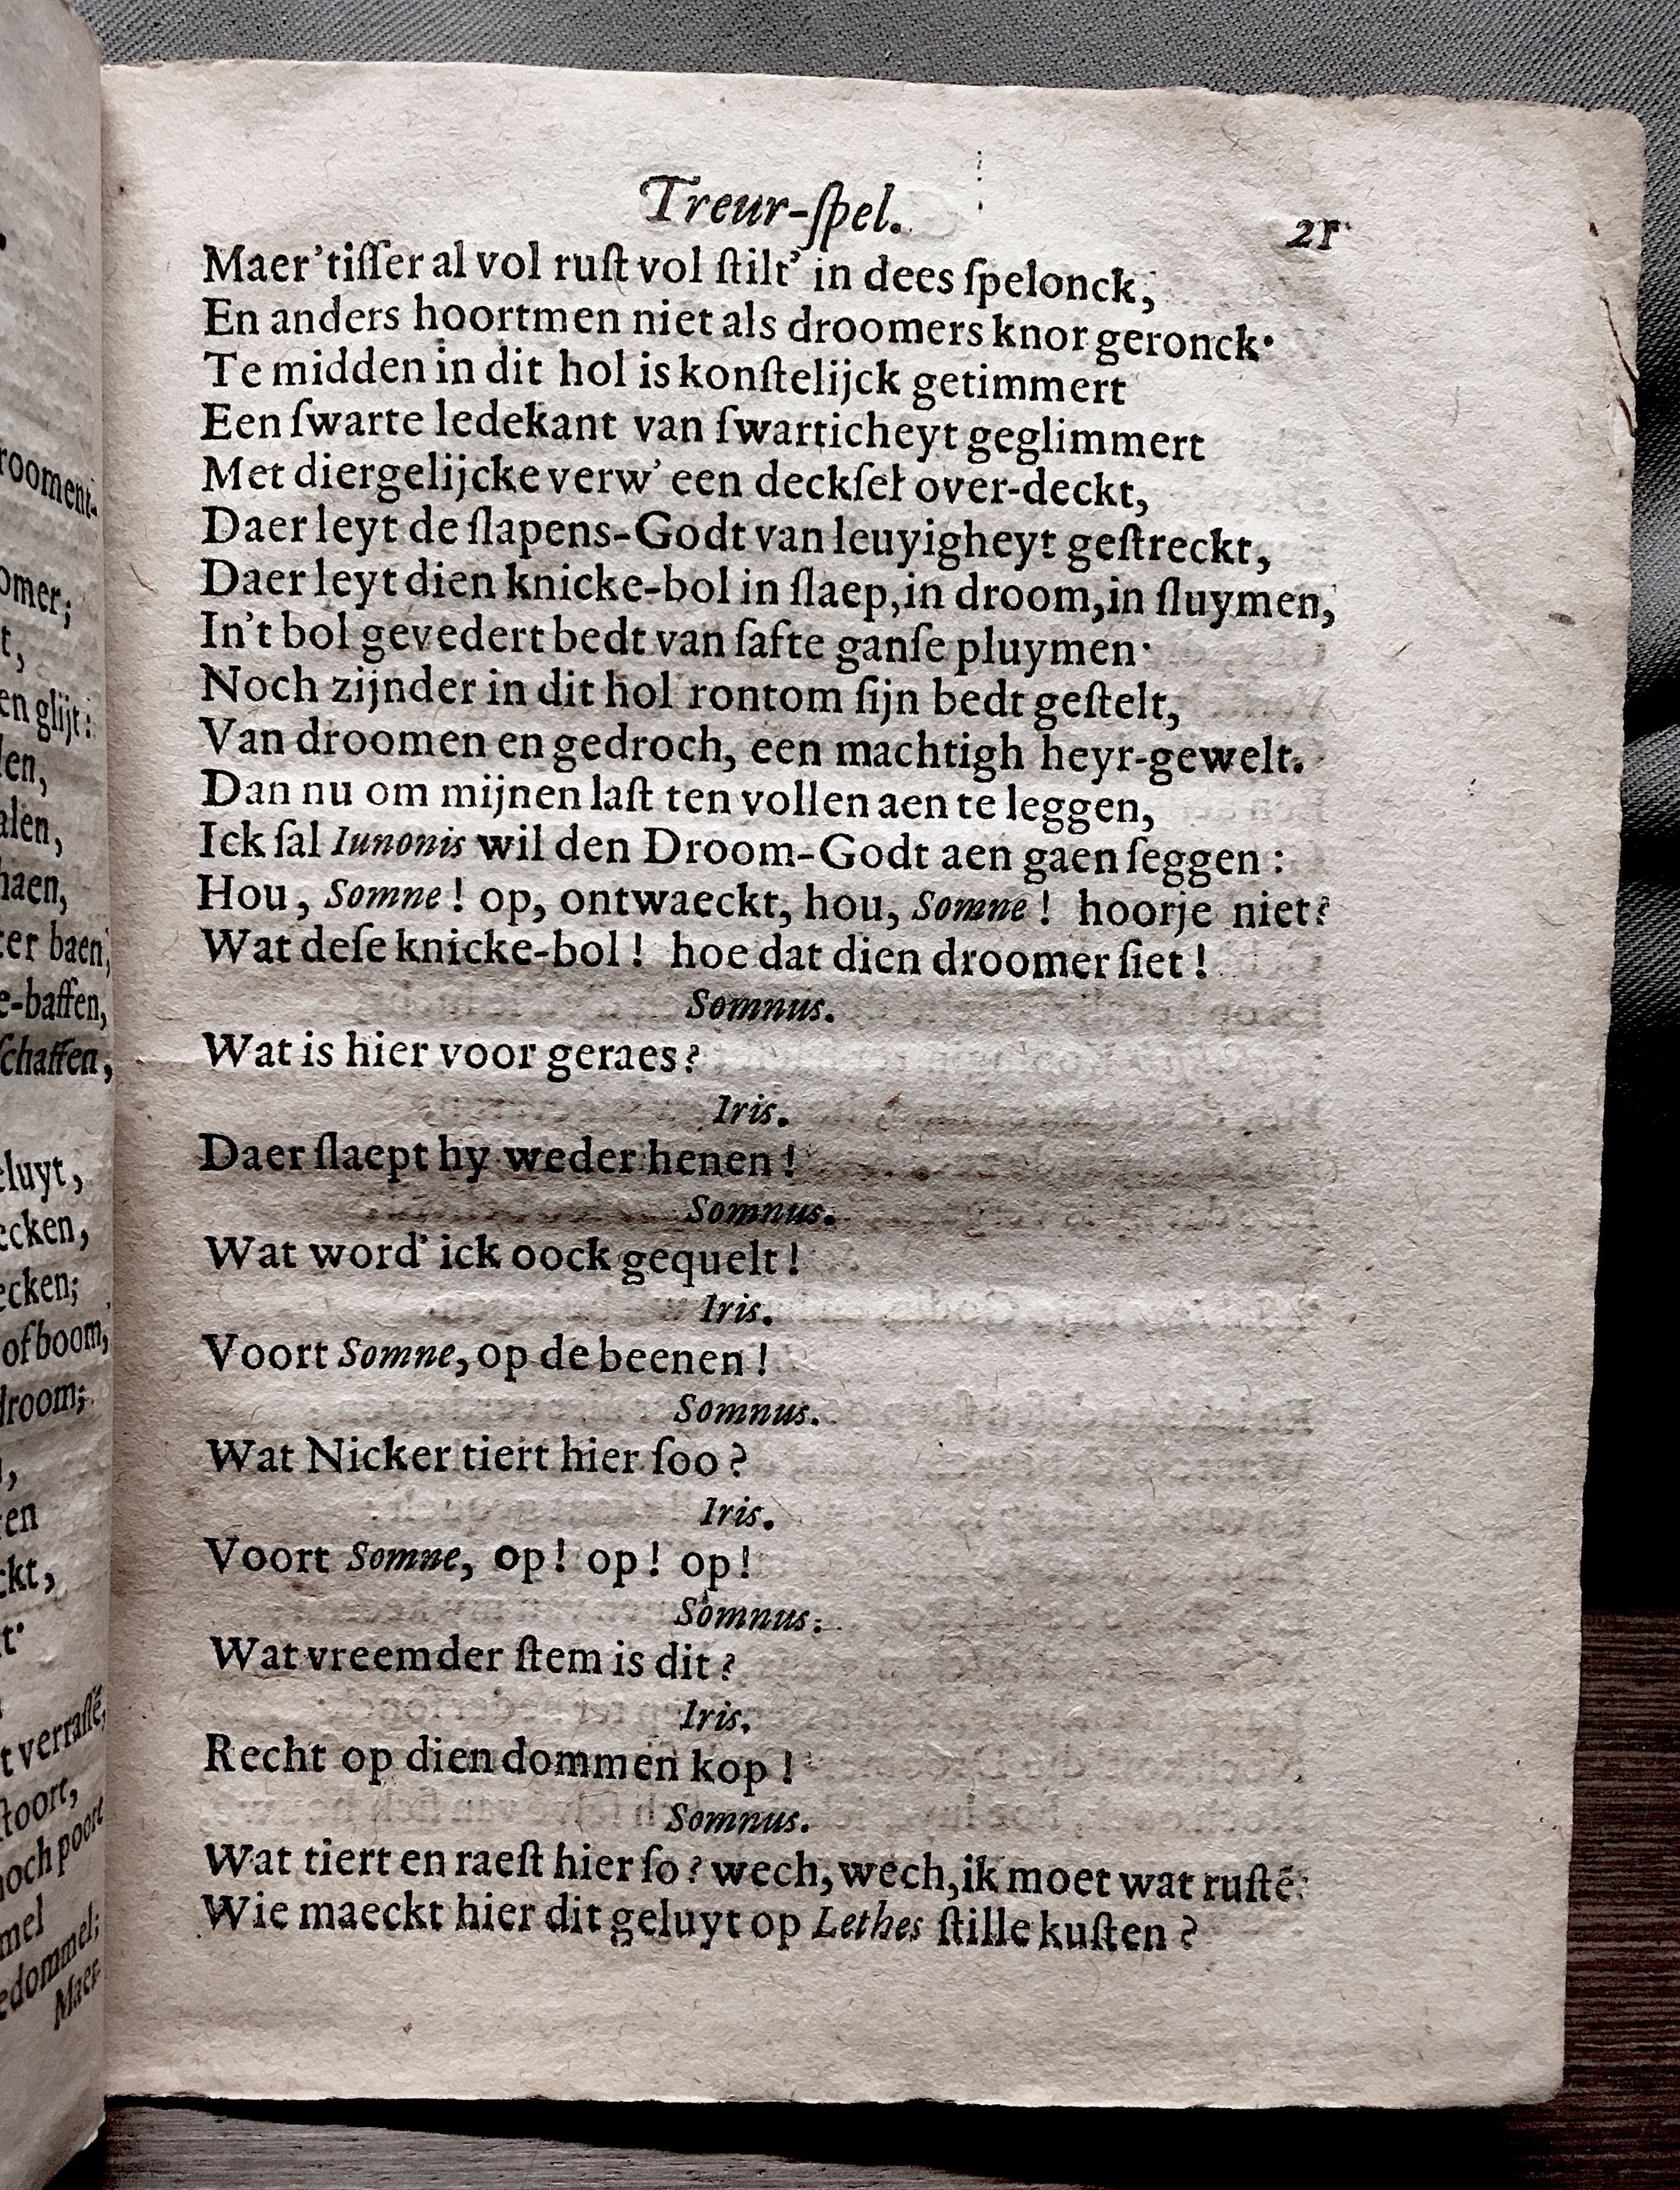 Treur-ſpel. 21
Maer 'tiſſer al vol ruſt vol ſtilt' in dees ſpelonck,
En anders hoortmen niet als droomers knor geronck·
Te midden in dit hol is konſtelijck getimmert
Een ſwarte ledekant van ſwarticheyt geglimmert
Met diergelijcke verw' een deckſel over-deckt,
Daer leyt de ſlapens-Godt van leuyigheyt geſtreckt,
Daer leyt dien knicke-bol in ſlaep, in droom, in ſluymen,
In't bol gevedert bedt van ſafte ganſe pluymen·
Noch zijnder in dit hol rontom ſijn bedt geſtelt,
Van droomen en gedroch, een machtigh heyr-gewelt.
Dan nu om mijnen laſt ten vollen aen te leggen,
Ick ſal Iunonis wil den Droom-Godt aen gaen ſeggen :
Hou, Somne ! op, ontwaeckt, hou, Somne ! hoorje niet?
Wat deſe knicke-bol ! hoe dat dien droomer ſiet !
Somnus.
Wat is hier voor geraes?
Iris.
Daer ſlaept hy weder henen !
Somnus.
Wat word' ick oock gequelt !
Iris.
Voort Somne, op de beenen !
Somnus.
Wat Nicker tiert hier ſoo ?
Iris.
Voort Somne, op! op! op!
Somnus.
Wat vreemder ſtem is dit ?
Iris.
Recht op dien dommen kop !
Somnus.
Wat tiert en raeſt hier ſo ? wech, wech, ik moet wat ruſtē:
Wie maeckt hier dit geluyt op Lethes ſtille kuſten ?
rooment-
omer;
t,
en glijt:
len,
alen,
haen,
ter baen,
e-baffen,
ſchaffen,
eluyt,
ecken,
ecken;
of boom,
droom;
en
ckt,
t·
t verraſſē,
ſtoort,
noch poort
mel
edommel;
Maer